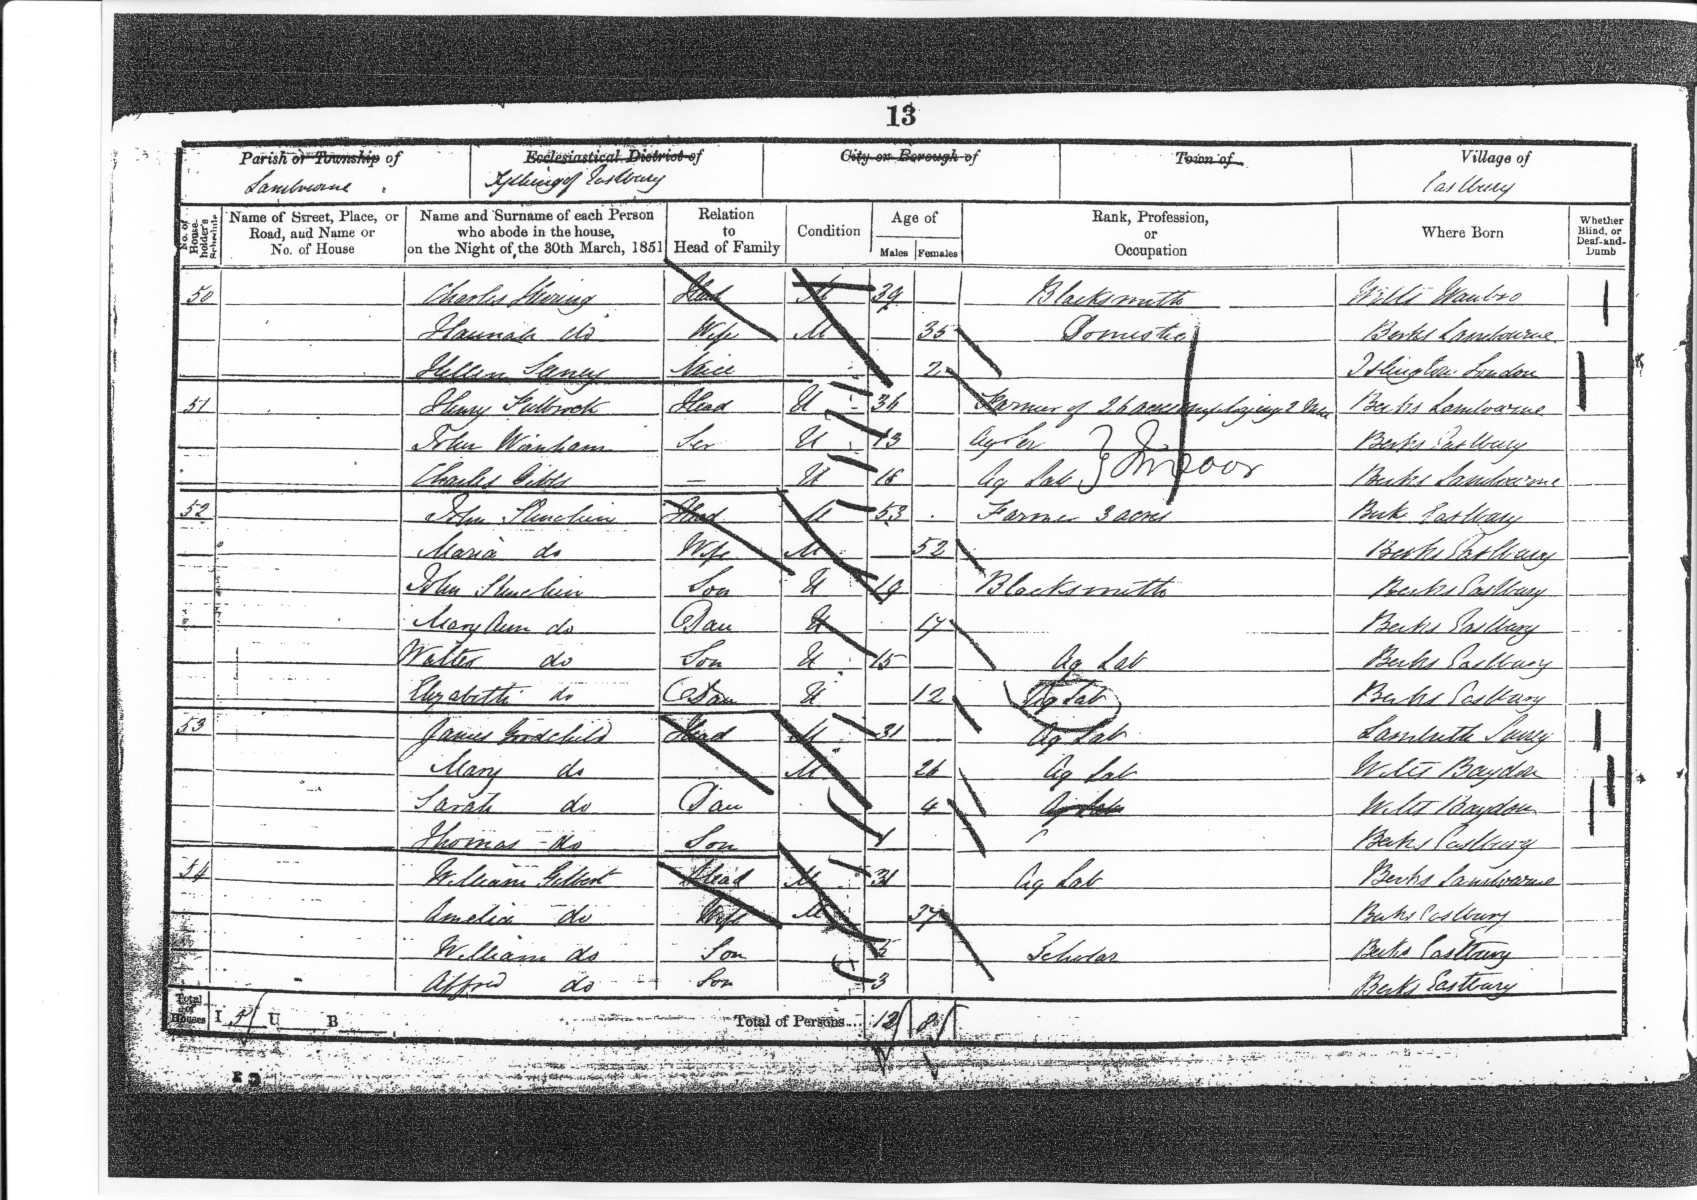 13
Parish or Township of Ecclesiastical District of City or Borough of Town of Village of
Lambourne Tything of Eastbury Eastbury
No. of Householder's Schedule Name of Street, Place, or Road, and Name or No. of House Name and Surname of each Person who abode in the house, on the Night of the 30th March, 1851 Relation to Head of Family Condition Age of Males Females Rank, Profession, or Occupation Where Born Whether Blind, or Deaf-and-Dumb
50 Charles Head M 39 Blacksmith Wilts Wanbro
Hannah do Wife M 35 Domestic Berks Lambourne
Niece 2 Islington London
51 Henry Head U 36 Farmer of 26 acres employing 2 Men Berks Lambourne
John Ser U 13 Ag Ser Berks Eastbury
Charles Gibbs — U 16 Ag Lab Indoor Berks Lambourne
52 John Head M 53 Farmer 3 acres Berks Eastbury
Maria do Wife M 52 Berks Eastbury
John Son U 19 Blacksmith Berks Eastbury
Mary Ann do Dau U 17 Berks Eastbury
Walter do Son U 15 Ag Lab Berks Eastbury
Elizabeth do Dau U 12 Ag Lab Berks Eastbury
53 James Goodchild Head M 31 Ag Lab Lambeth Surrey
Mary do M 26 Ag Lab Wilts Baydon
Sarah do Dau 4 Ag Lab Wilts Baydon
Thomas do Son 1 Berks Eastbury
54 William Gilbert Head M 31 Ag Lab Berks Lambourne
Amelia do Wife M 37 Berks Eastbury
William do Son 5 Scholar Berks Eastbury
Alfred do Son 3 Berks Eastbury
Total of Houses I 5 U B Total of Persons... 12 8